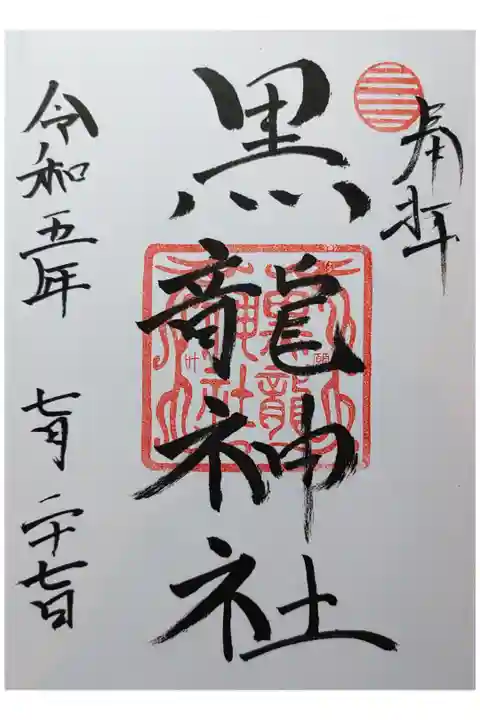 奉拝
黒龍神社
令和五年 七月二十七日